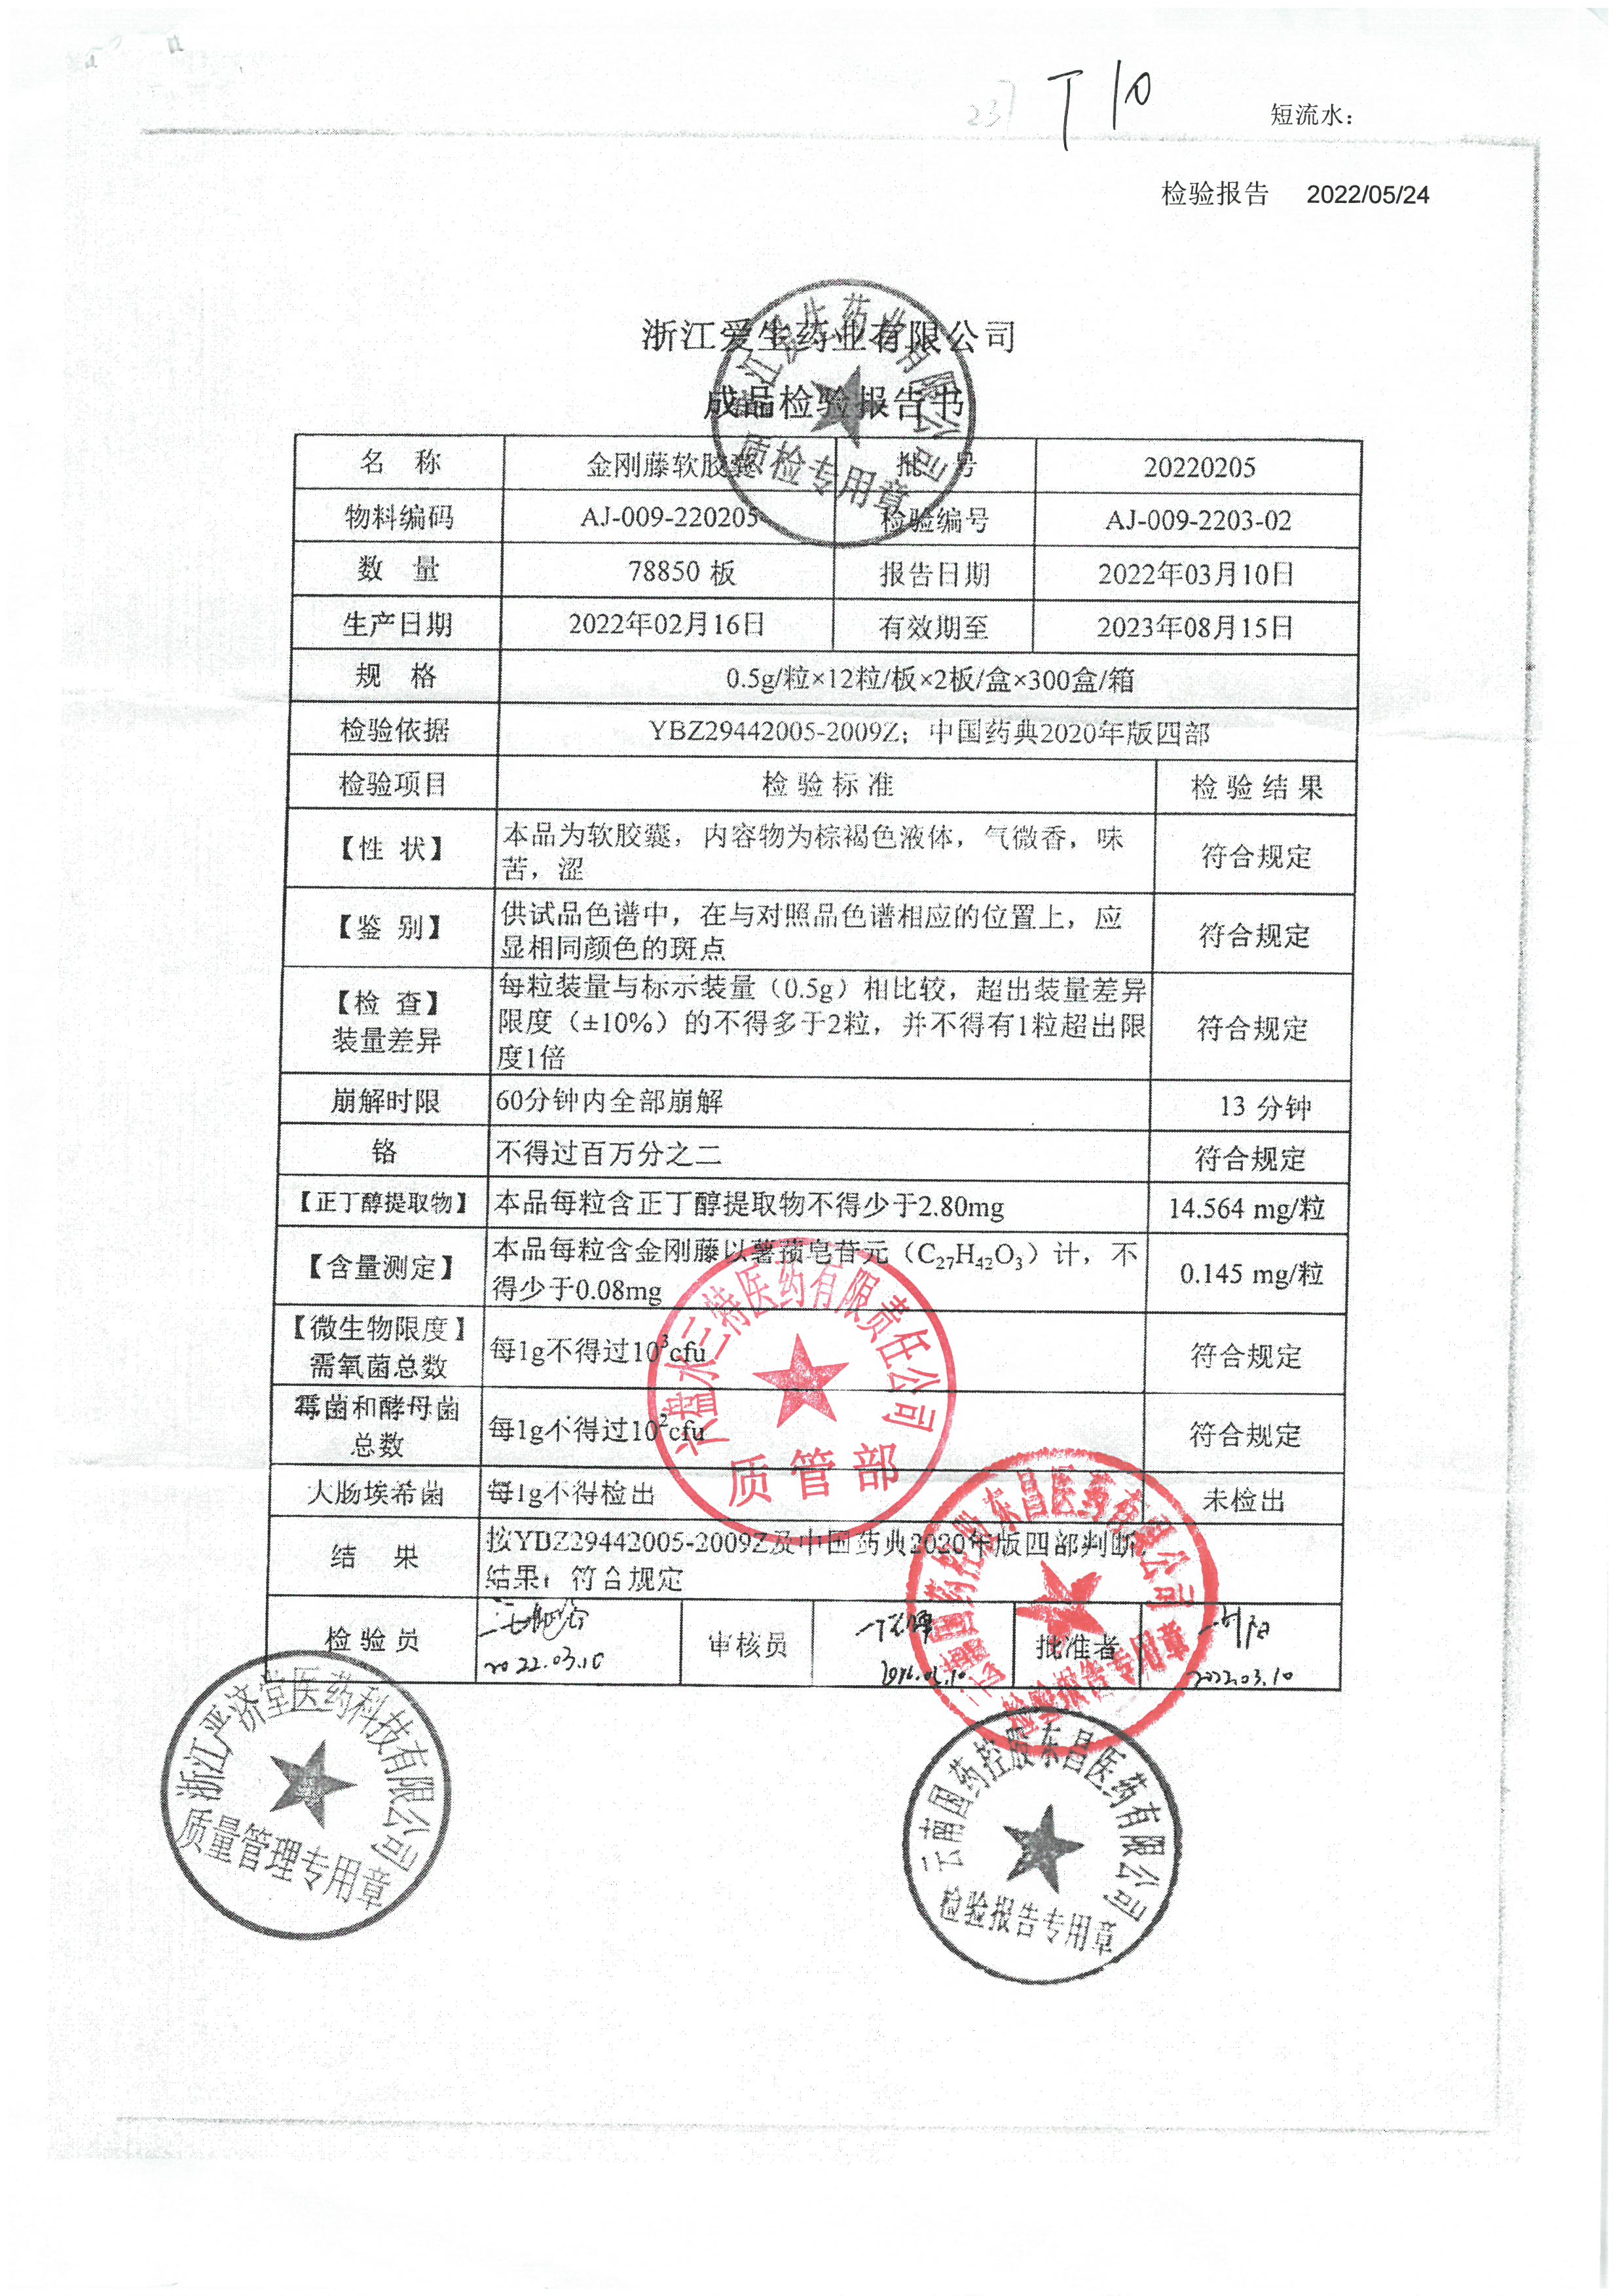 T 10
短流水：
检验报告 2022/05/24
浙江爱生药业有限公司
成品检验报告书
名 称 金刚藤软胶囊 批 号 20220205
物料编码 AJ-009-220205 检验编号 AJ-009-2203-02
数 量 78850 板 报告日期 2022年03月10日
生产日期 2022年02月16日 有效期至 2023年08月15日
规 格 0.5g/粒×12粒/板×2板/盒×300盒/箱
检验依据 YBZ29442005-2009Z；中国药典2020年版四部
检验项目 检 验 标 准 检 验 结 果
【性 状】 本品为软胶囊，内容物为棕褐色液体，气微香，味
苦，涩 符合规定
【鉴 别】 供试品色谱中，在与对照品色谱相应的位置上，应
显相同颜色的斑点 符合规定
【检 查】
装量差异
每粒装量与标示装量（0.5g）相比较，超出装量差异
限度（±10%）的不得多于2粒，并不得有1粒超出限
度1倍
符合规定
崩解时限 60分钟内全部崩解 13 分钟
铬 不得过百万分之二 符合规定
【正丁醇提取物】 本品每粒含正丁醇提取物不得少于2.80mg 14.564 mg/粒
【含量测定】 本品每粒含金刚藤以薯蓣皂苷元（C27H42O3）计，不
得少于0.08mg 0.145 mg/粒
【微生物限度】
需氧菌总数 每1g不得过10³cfu 符合规定
霉菌和酵母菌
总数 每1g不得过10²cfu 符合规定
大肠埃希菌 每1g不得检出 未检出
结 果 按YBZ29442005-2009Z及中国药典2020年版四部判断，
结果：符合规定
检 验 员 2022.03.10 审核员 批准者 2022.03.10
浙江爱生药业有限公司
质检专用章
三特医药有限责任公司
质管部
云南国药控股东昌医药有限公司
检验报告专用章
浙江严济堂医药科技有限公司
质量管理专用章
云南国药控股东昌医药有限公司
检验报告专用章